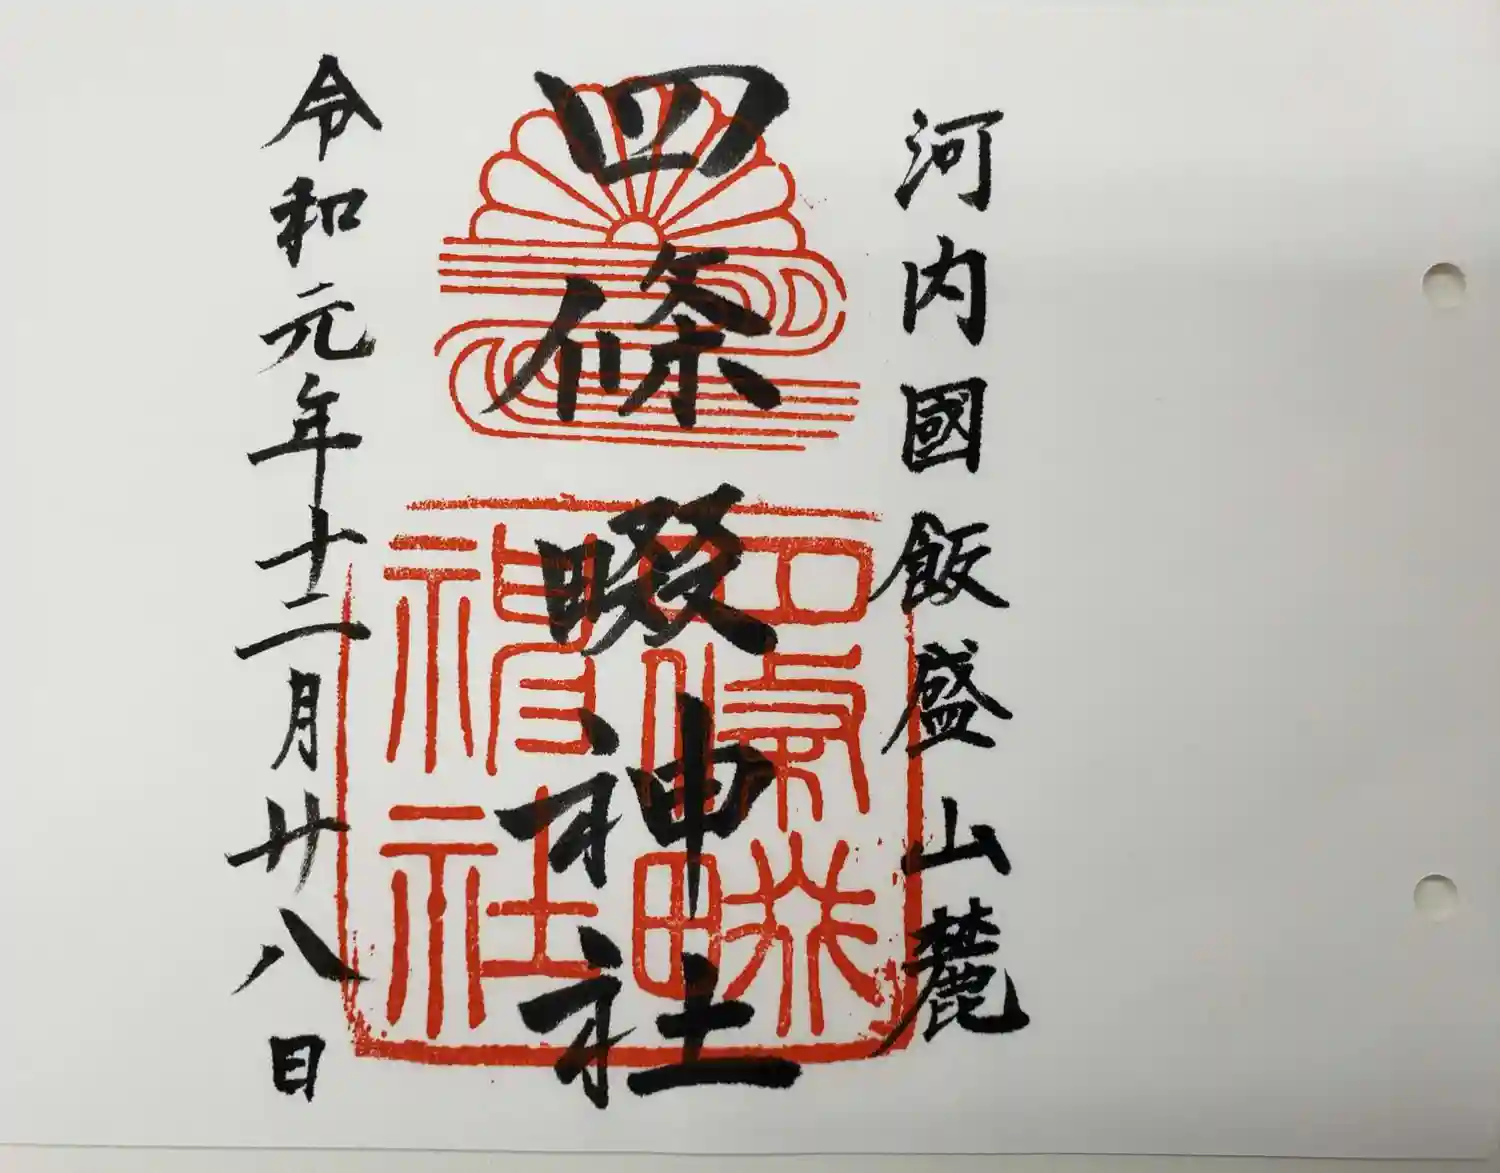 河内國飯盛山麓
四條畷神社
四條畷
神社
令和元年十二月廿八日